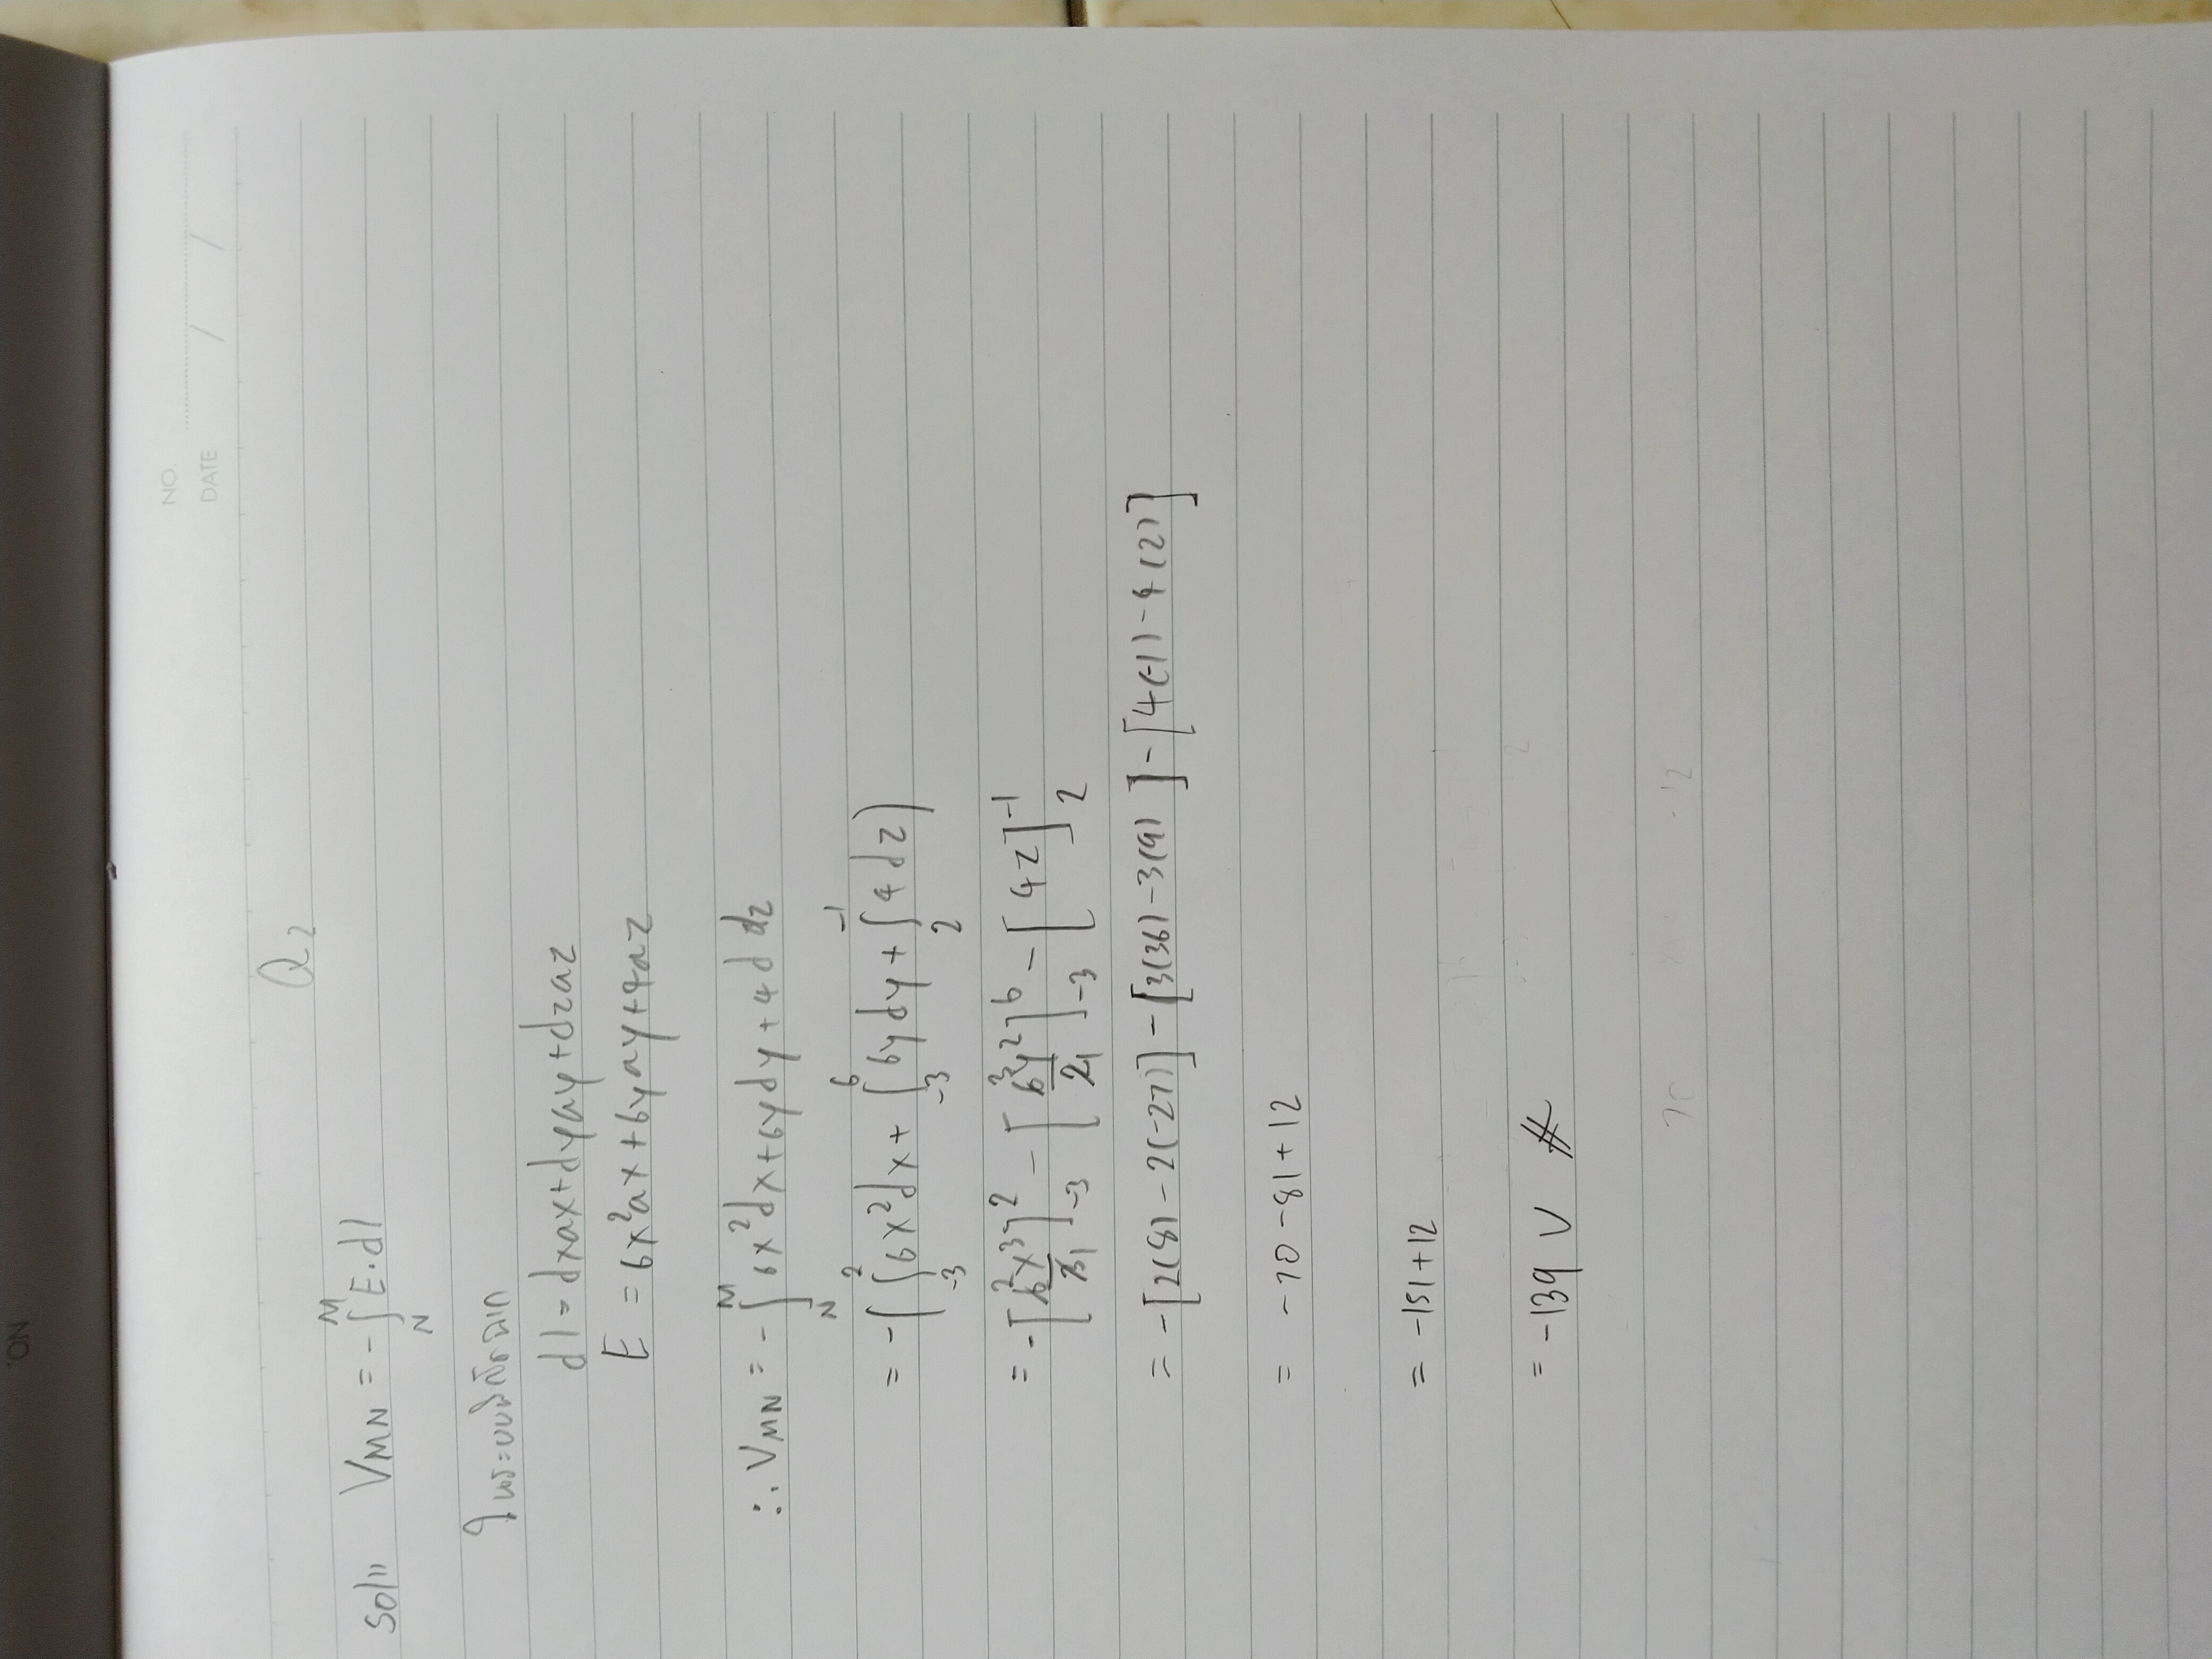 NO.
NO.
DATE / /
Q2
Soln VMN = -∫ᴹN E·dl
ในระบบพิกัดฉาก
dl = dxax+dyay+dzaz
E = 6x²ax+6yay+4az
∴ VMN = -∫ᴹN 6x²dx+6ydy+4d dz
= -(∫²-3 6x²dx + ∫⁶-3 6ydy + ∫⁻¹2 4dz)
= -[6²x³/31]²-3 - [6³y²/21]⁶-3 - [4z]⁻¹2
= -[2(8)-2(-27)] - [3(36)-3(9)] - [4(-1)-4(2)]
= -70-81+12
= -151+12
= -139 V #